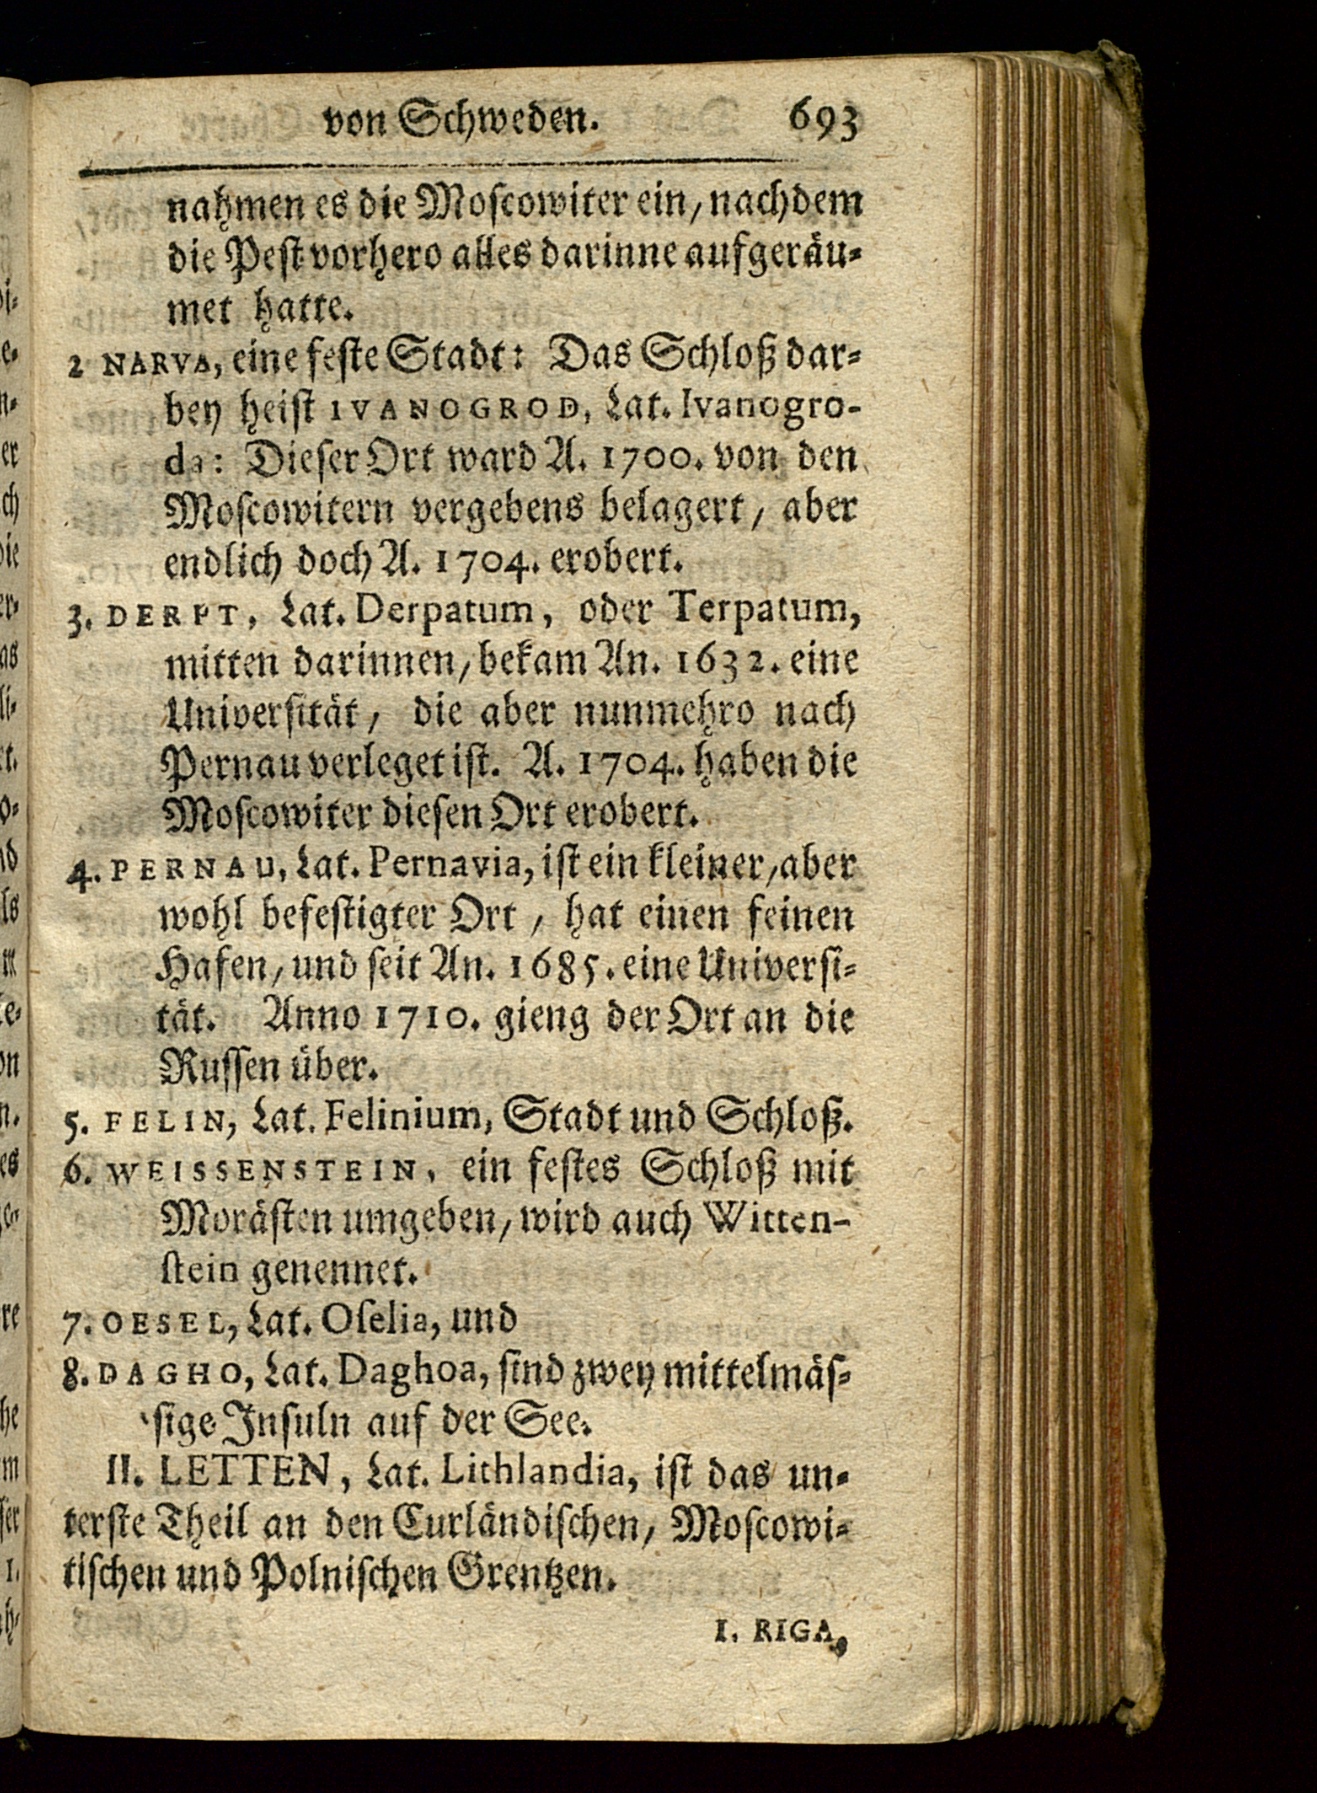 von Schweden. 693
nahmen es die Moscowiter ein, nachdem
die Pest vorhero alles darinne aufgeräu-
met hatte.
2 NARVA, eine feste Stadt: Das Schloß dar-
bey heist IVANOGROD, Lat. Ivanogro-
da: Dieser Ort ward A. 1700. von den
Moscowitern vergebens belagert, aber
endlich doch A. 1704. erobert.
3. DERPT, Lat. Derpatum, oder Terpatum,
mitten darinnen, bekam An. 1632. eine
Universität, die aber nunmehro nach
Pernau verleget ist. A. 1704. haben die
Moscowiter diesen Ort erobert.
4. PERNAU, Lat. Pernavia, ist ein kleiner, aber
wohl befestigter Ort, hat einen feinen
Hafen, und seit An. 1685. eine Universi-
tät. Anno 1710. gieng der Ort an die
Russen über.
5. FELIN, Lat. Felinium, Stadt und Schloß.
6. WEISSENSTEIN, ein festes Schloß mit
Morästen umgeben, wird auch Witten-
stein genennet.
7. OESEL, Lat. Oselia, und
8. DAGHO, Lat. Daghoa, sind zwey mittelmäs-
sige Insuln auf der See.
II. LETTEN, Lat. Lithlandia, ist das un-
terste Theil an den Curländischen, Moscowi-
tischen und Polnischen Grentzen.
1. RIGA,